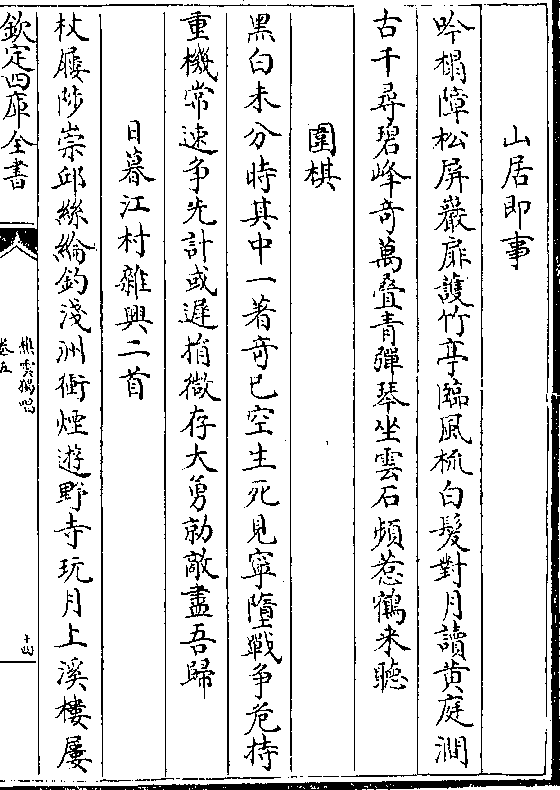 山居即事
吟榻障松屏巖扉護竹亭臨風梳白髮對月讀黄庭澗
古千尋碧峰奇萬叠青彈琴坐雲石頻惹鶴来聽
圍棋
黑白未分時其中一著奇已空生死見寧墮戰争危持
重機常速争先計或遲捎微存大勇勍敵盡吾歸
日暮江村雜興二首
杖屨陟崇邱絲綸釣淺洲衝煙遊野寺玩月上溪樓屢
欽定四庫全書
樵雲獨唱
卷五
十四